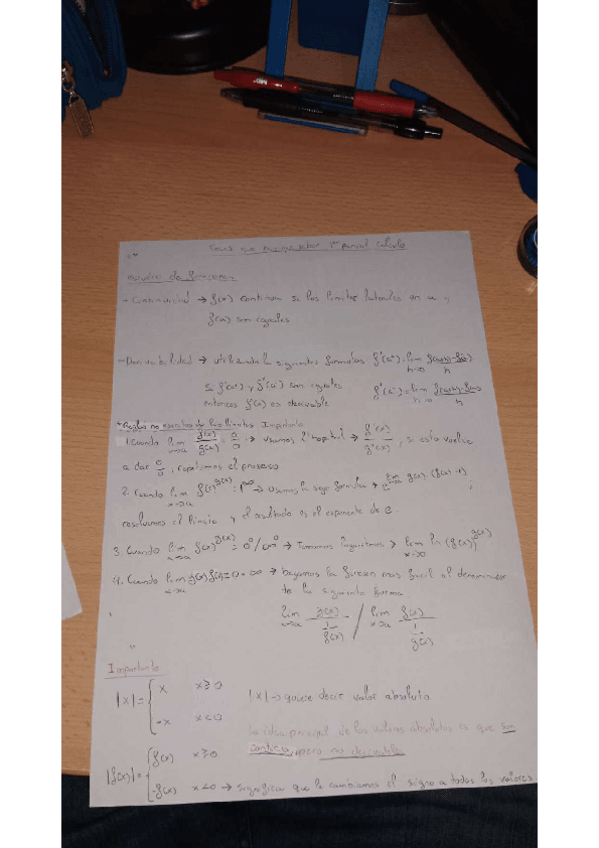 Cosas que hay que saber 1er parcial Cálculo
estudio de funciones
- Continuidad → f(x) continua si los límites laterales en a y
f(a) son iguales
- Derivabilidad → utilizando la siguientes formulas f'(a⁺)=lim h→0 f(a+h)-f(a)/h
si f'(a⁺) y f'(a⁻) son iguales f'(a⁻)=lim h→0 f(a+h)-f(a)/h
entonces f(x) es derivable
*Reglas no escritas de los límites Importante
1. Cuando lim x→a f(x)/g(x) = 0/0 → usamos l'hopital → f'(x)/g'(x), si esto vuelve
a dar 0/0, repetimos el proceso
2. Cuando lim x→a f(x)^g(x) = 1^∞ → usamos la sige formula → e^lim x→a g(x)·(f(x)-1);
resolvemos el límite y el resultado es el exponente de e.
3. Cuando lim x→a f(x)^g(x) = 0^0/∞^0 → Tomamos logaritmos → lim x→∞ ln (f(x))^g(x)
4. Cuando lim x→a g(x) f(x) = 0·∞ → bajamos la funcion más facil al denominador
de la siguiente forma
lim x→a g(x)/1/f(x) / lim x→a f(x)/1/g(x)
Importante
|x| = { x x≥0 |x| → quiere decir valor absoluto
-x x<0
la idea principal de los valores absolutos es que son
continua, pero no derivable
|f(x)| = { f(x) x≥0
-f(x) x<0 → significa que le cambiamos el signo a todos los valores